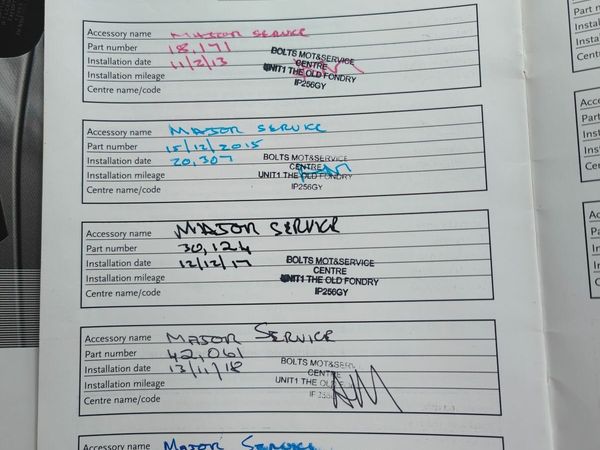 Accessory name MAJOR SERVICE
Part number 18,171
Installation date 11/2/13
Installation mileage
Centre name/code
BOLTS MOT&SERVICE
CENTRE
UNIT1 THE OLD FONDRY
IP256GY
Accessory name MAJOR SERVICE
Part number 15/12/2015
Installation date 20,307
Installation mileage
Centre name/code
BOLTS MOT&SERVICE
CENTRE
UNIT1 THE OLD FONDRY
IP256GY
Accessory name MAJOR SERVICE
Part number 30,124
Installation date 12/12/17
Installation mileage
Centre name/code
BOLTS MOT&SERVICE
CENTRE
UNIT1 THE OLD FONDRY
IP256GY
Accessory name MAJOR SERVICE
Part number 42,061
Installation date 13/11/18
Installation mileage
Centre name/code
BOLTS MOT&SERV
CENTRE
UNIT1 THE OLD
Accessory name MAJOR SERVICE
Part n
Insta
Insta
Cent
Acce
Part
Inst
Inst
Cen
Ac
Pa
In
In
C